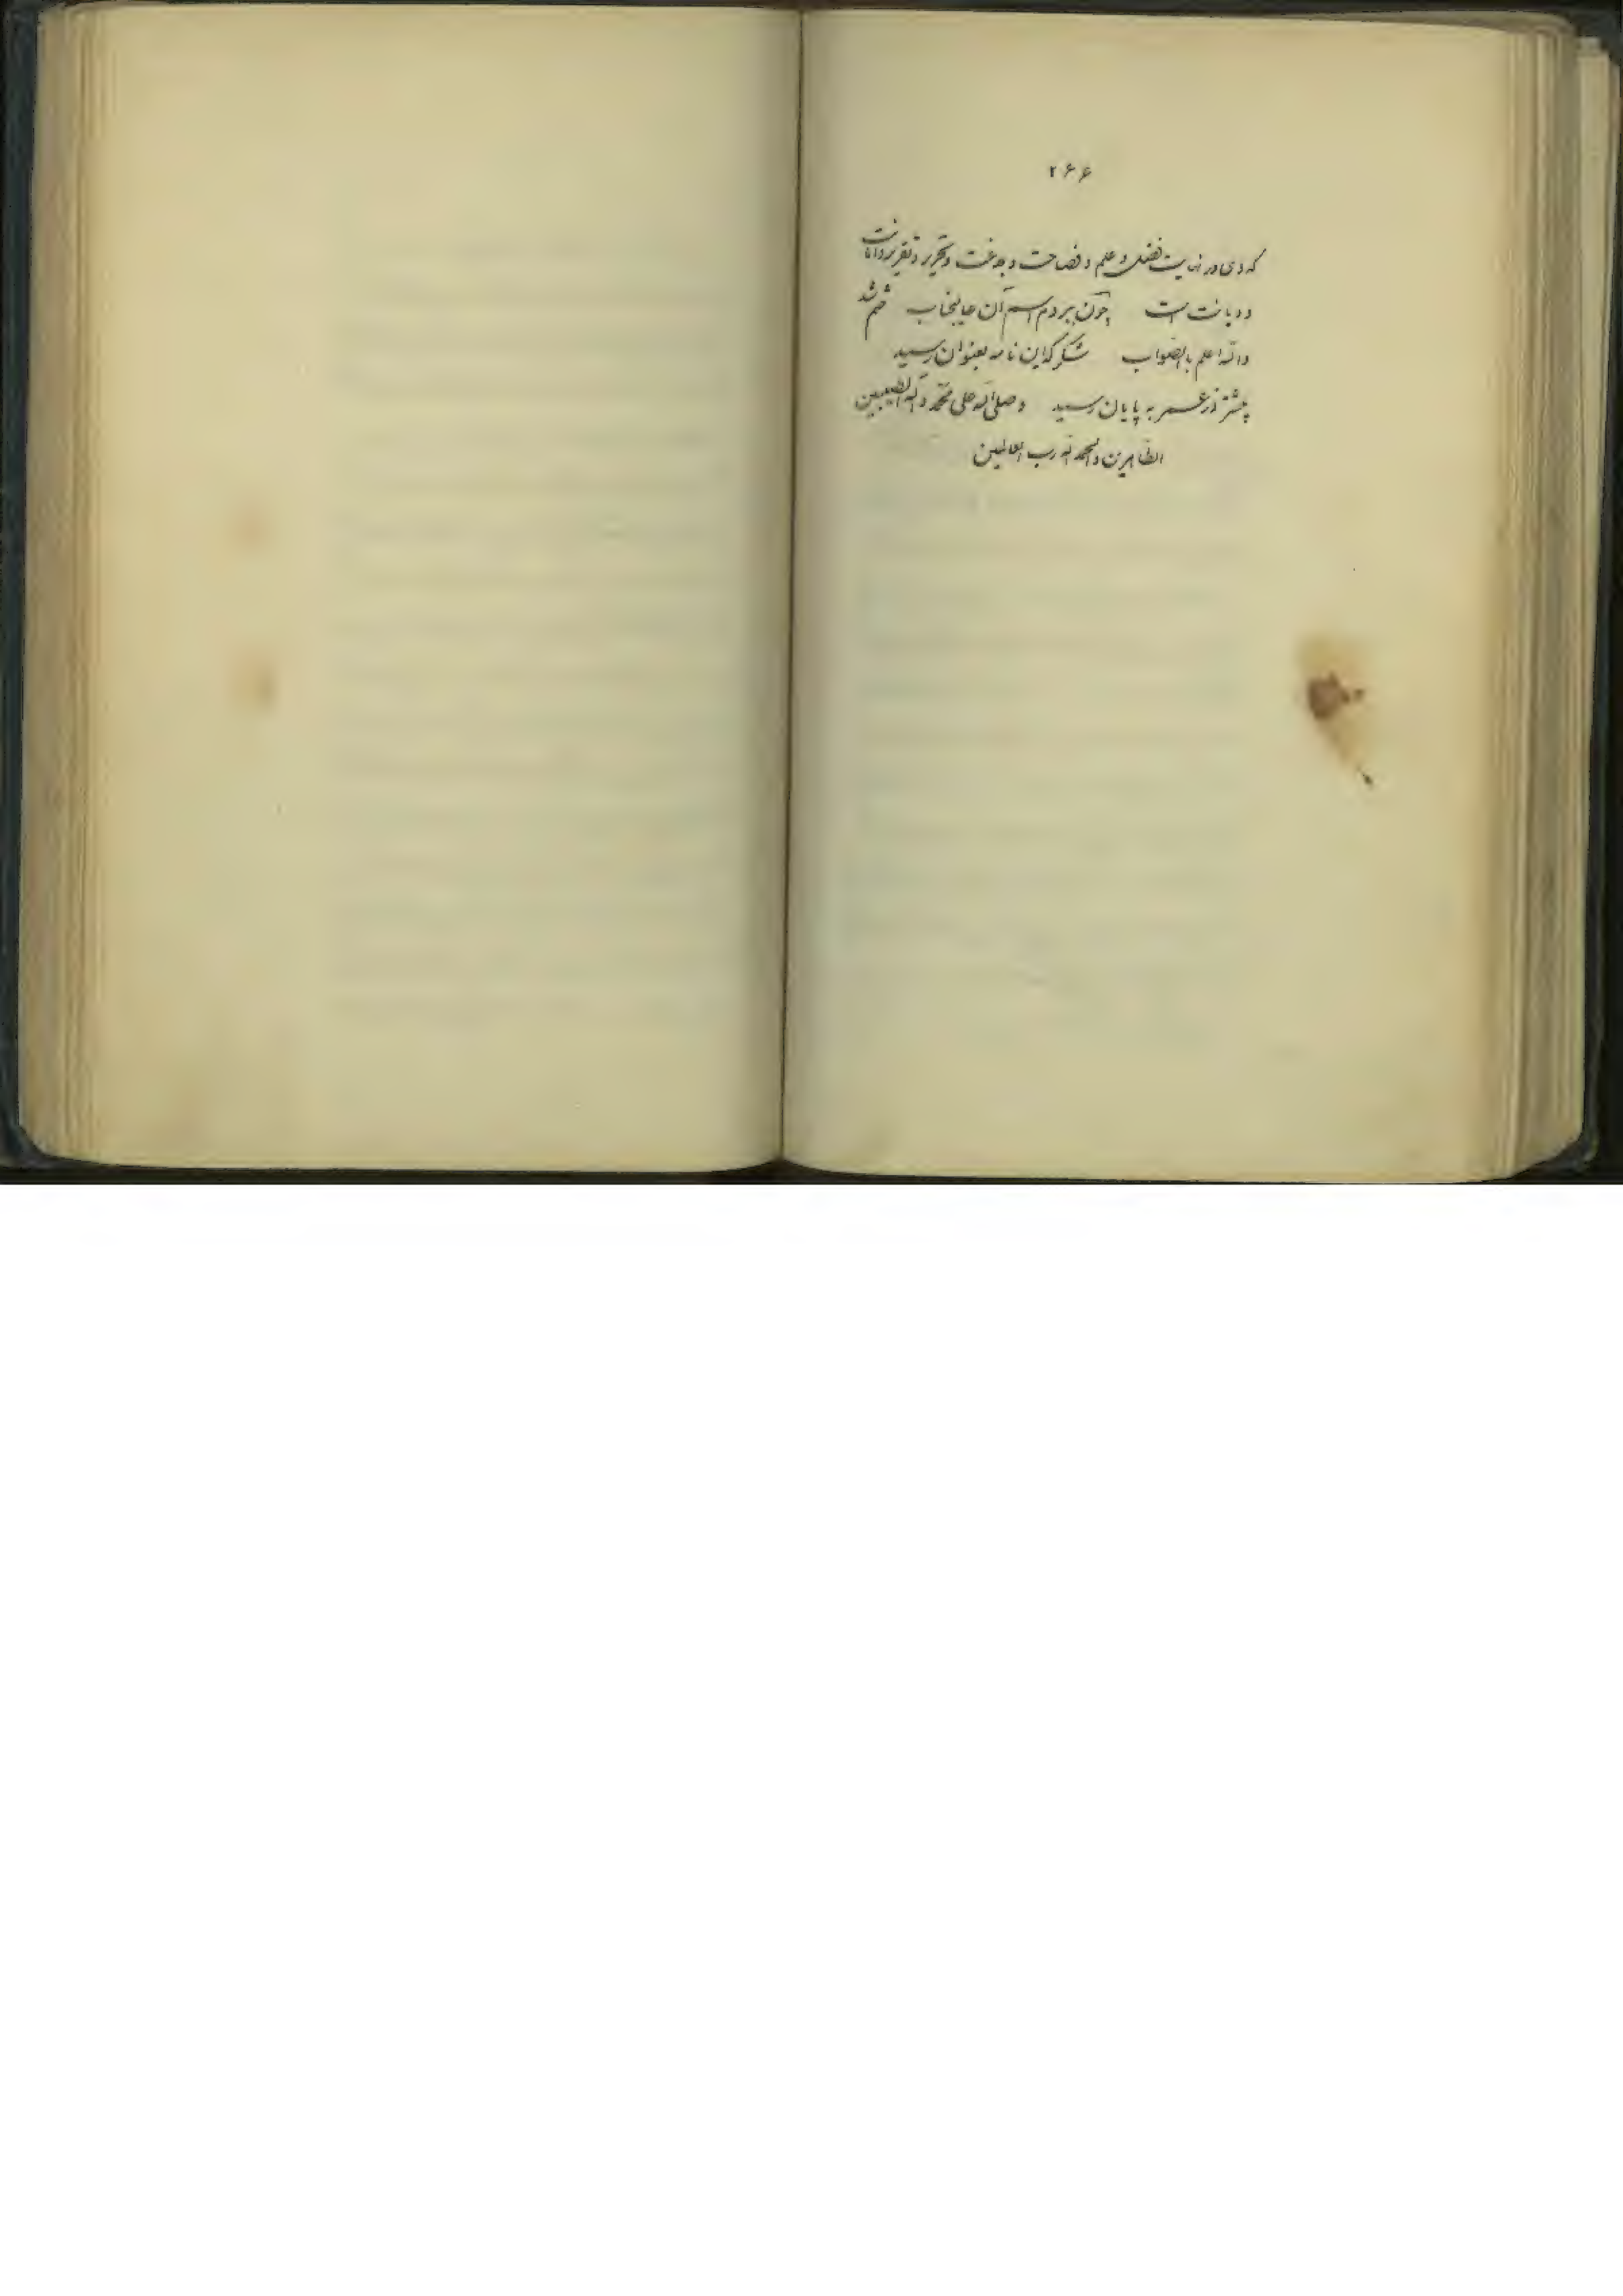 ۲۶۶
که وی در نهایت فضل و علم و فصاحت و بلاغت و تحریر و تقریر و امانت
و دیانت است چون ببردم اسم آن عالیجناب ختم شد
والله اعلم بالصّواب شکر که این نامه بعنوان رسید
پیشتر از عمر به پایان رسید و صلی الله علی محمّد و آله الطیبین
الطاهرین والحمد لله رب العالمین